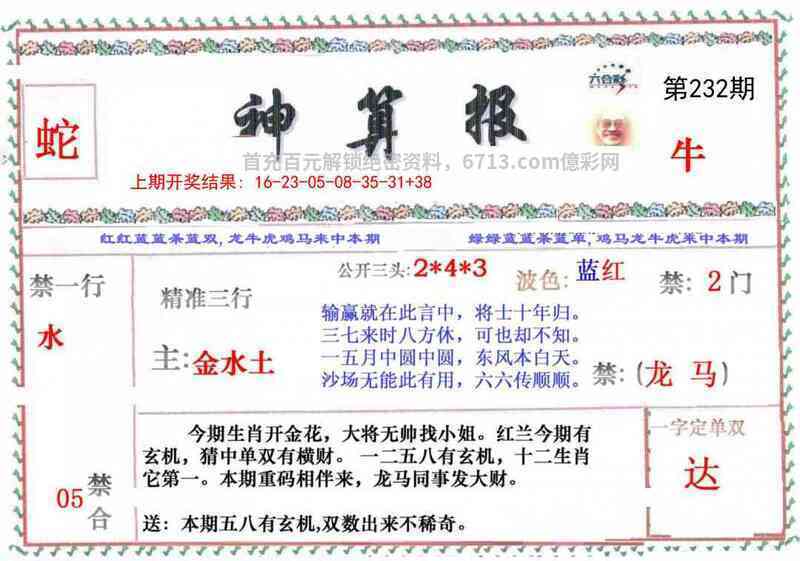 六合彩
第232期
神算报
蛇
牛
首充百元解锁绝密资料，6713.com億彩网
上期开奖结果：16-23-05-08-35-31+38
红红蓝蓝杀蓝双,龙牛虎鸡马来中本期
绿绿蓝蓝杀蓝单,鸡马龙牛虎来中本期
禁一行
水
精准三行
主:金水土
公开三头:2*4*3
波色:蓝红
禁:2门
输赢就在此言中，将士十年归。
三七来时八方休，可也却不知。
一五月中圆中圆，东风本白天。
沙场无能此有用，六六传顺顺。
禁:(龙 马)
今期生肖开金花，大将无帅找小姐。红兰今期有
玄机，猜中单双有横财。 一二五八有玄机，十二生肖
它第一。本期重码相伴来，龙马同事发大财。
送：本期五八有玄机,双数出来不稀奇。
05
禁合
一字定单双
达